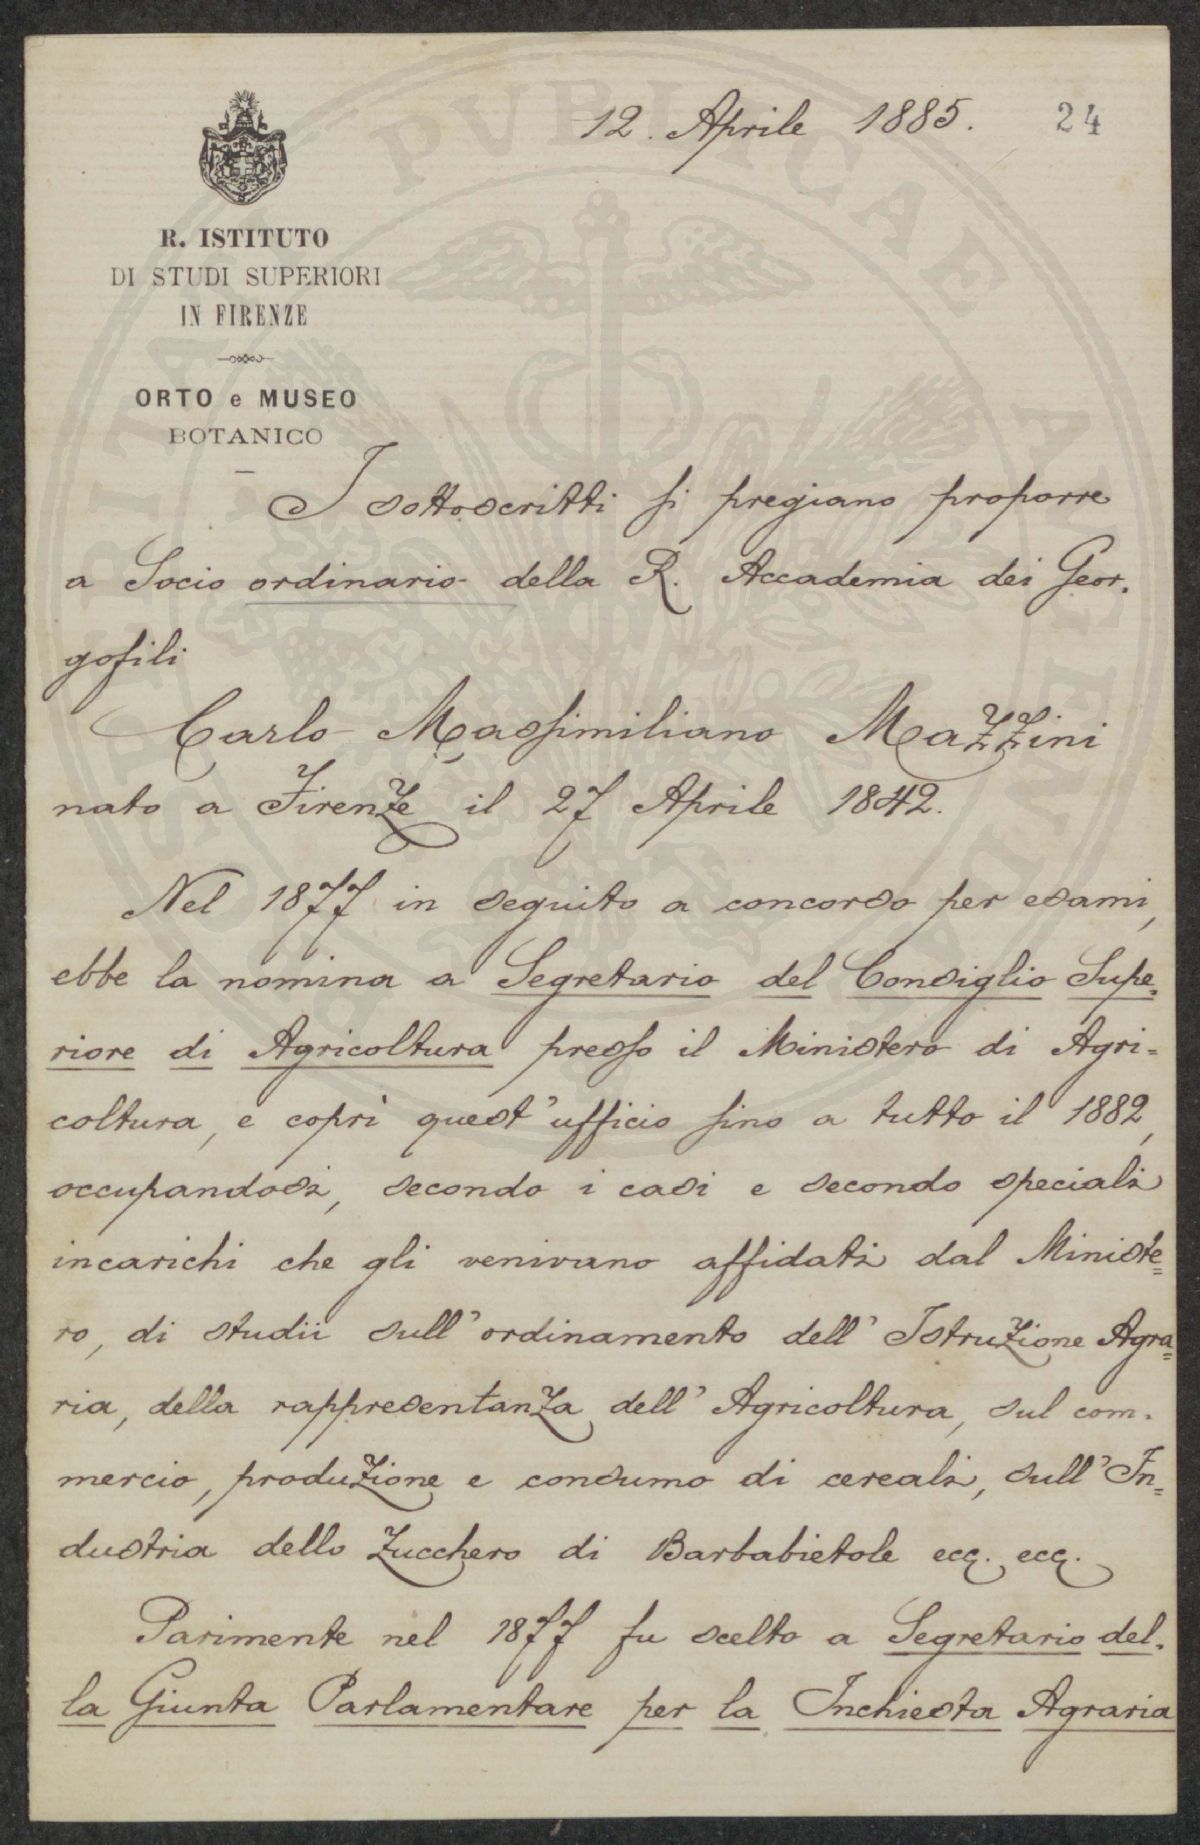 12. Aprile 1885.
24
R. ISTITUTO
DI STUDI SUPERIORI
IN FIRENZE
ORTO e MUSEO
BOTANICO
I sottoscritti si pregiano proporre
a Socio ordinario della R. Accademia dei Geor-
gofili
Carlo Massimiliano Mazzini
nato a Firenze il 27 Aprile 1842.
Nel 1877 in seguito a concorso per esami,
ebbe la nomina a Segretario del Consiglio Supe-
riore di Agricoltura presso il Ministero di Agri=
coltura, e coprì quest'ufficio sino a tutto il 1882,
occupandosi, secondo i casi e secondo speciali
incarichi che gli venivano affidati dal Ministe=
ro, di studii sull'ordinamento dell'Istruzione Agra=
ria, della rappresentanza dell'Agricoltura, sul com-
mercio, produzione e consumo di cereali, sull'In=
dustria dello Zucchero di Barbabietole ecc. ecc.
Parimente nel 1877 fu scelto a Segretario del-
la Giunta Parlamentare per la Inchiesta Agraria